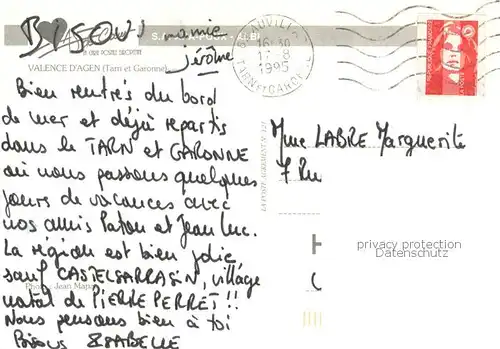 B♥SOUS mamie
jérôme
S.
ALBI
LA CARTE POSTALE DROPETTE
VALENCE D'AGEN (Tarn et Garonne)
BEAUVILLE
16-30
11-8
1995
TARN ET GARONNE
Bien rentrés du bord
de mer et déjà repartis
dans le TARN et GARONNE
où nous passons quelques
jours de vacances avec
nos amis Paton et Jean Luc.
La région est bien jolie,
sauf CASTELSARRASIN, village
Photo : Jean Mapou
natal de PIERRE PERRET !!
Nous pensons bien à toi
Bisous ISABELLE
Mme LABRE Marguerite
7 Ru
privacy protection
Datenschutz